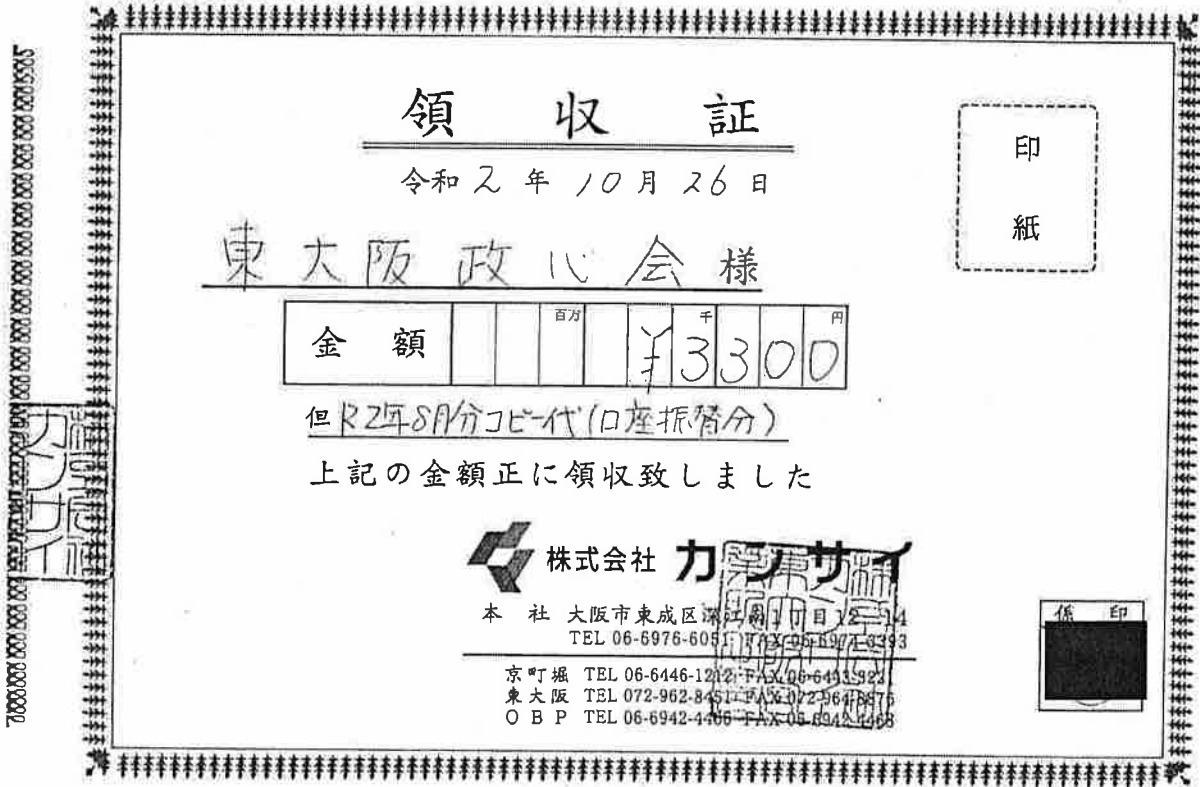 領収証
印紙
令和 2 年 10 月 26 日
東大阪政心会様
金額 百万 千 円 ¥3300
但 R2年8月分コピー代(口座振替分)
上記の金額正に領収致しました
株式会社 カンサイ
本社 大阪市東成区深江南1丁目12-14
TEL 06-6976-6051 FAX
係印
京町堀 TEL 06-6446-1212 FAX
東大阪 TEL 072-962-8451 FAX 072-964-8876
OBP TEL 06-6942-4466 FAX 06-6942-4468